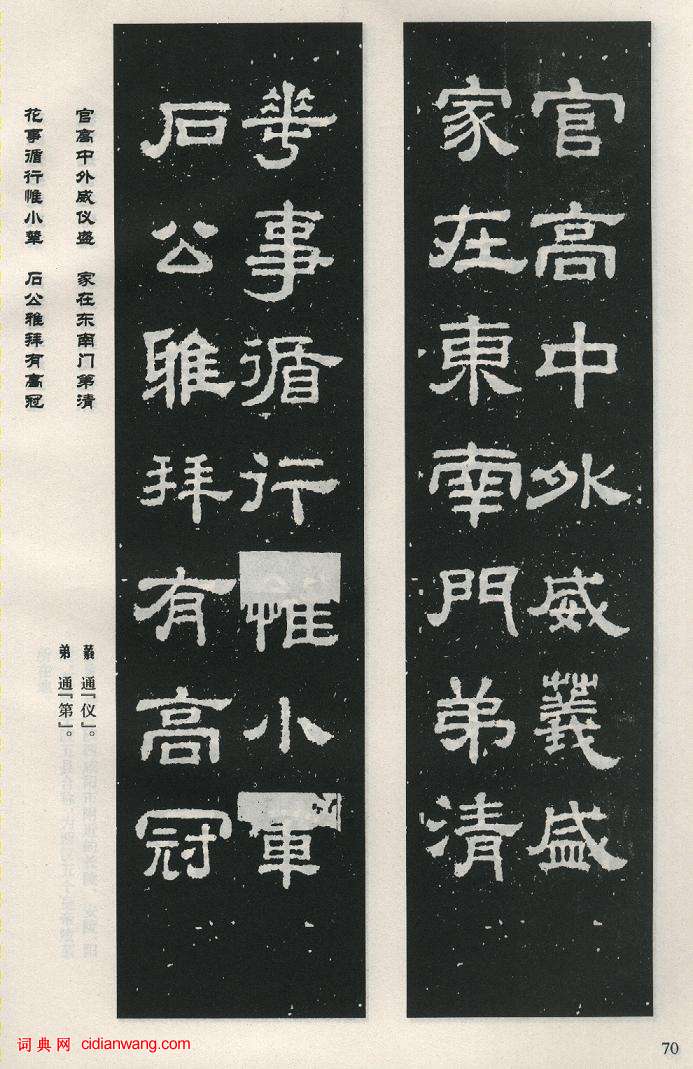 官高中外威䕏盛
家在東南門弟清
華事循行帷小輦
石公雅拜有高冠
官高中外威仪盛 家在东南门第清
花事循行帷小辇 石公雅拜有高冠
䕏 通『仪』。
弟 通『第』。
词典网 cidianwang.com
70